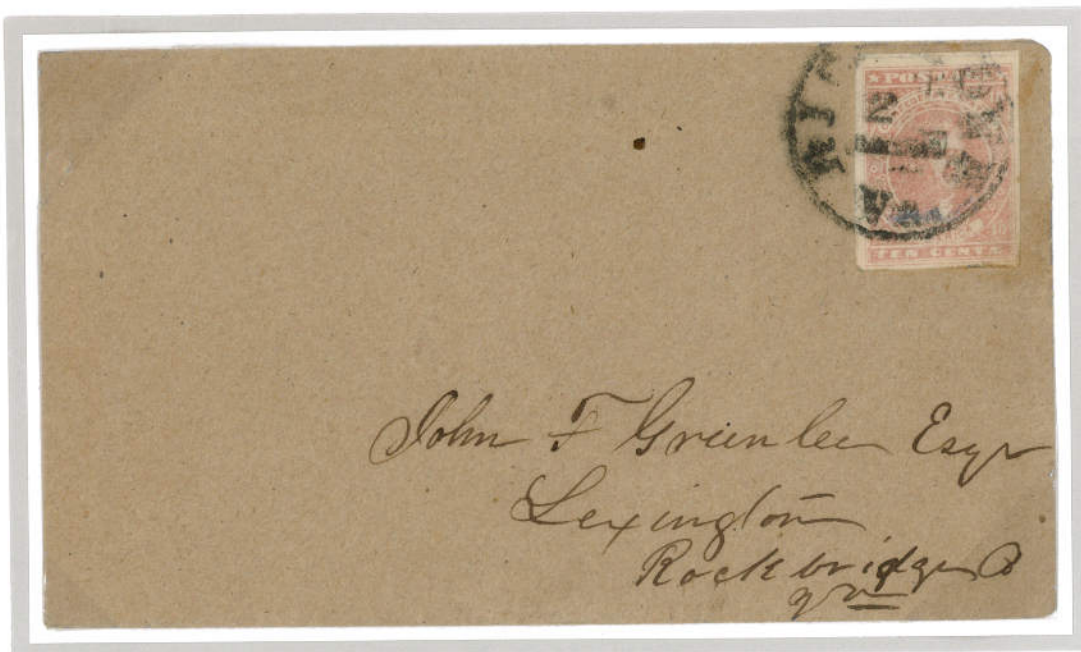 POSTAGE
TEN CENTS
John F Greenlee Esqr
Lexington
Rockbridge Co
Va